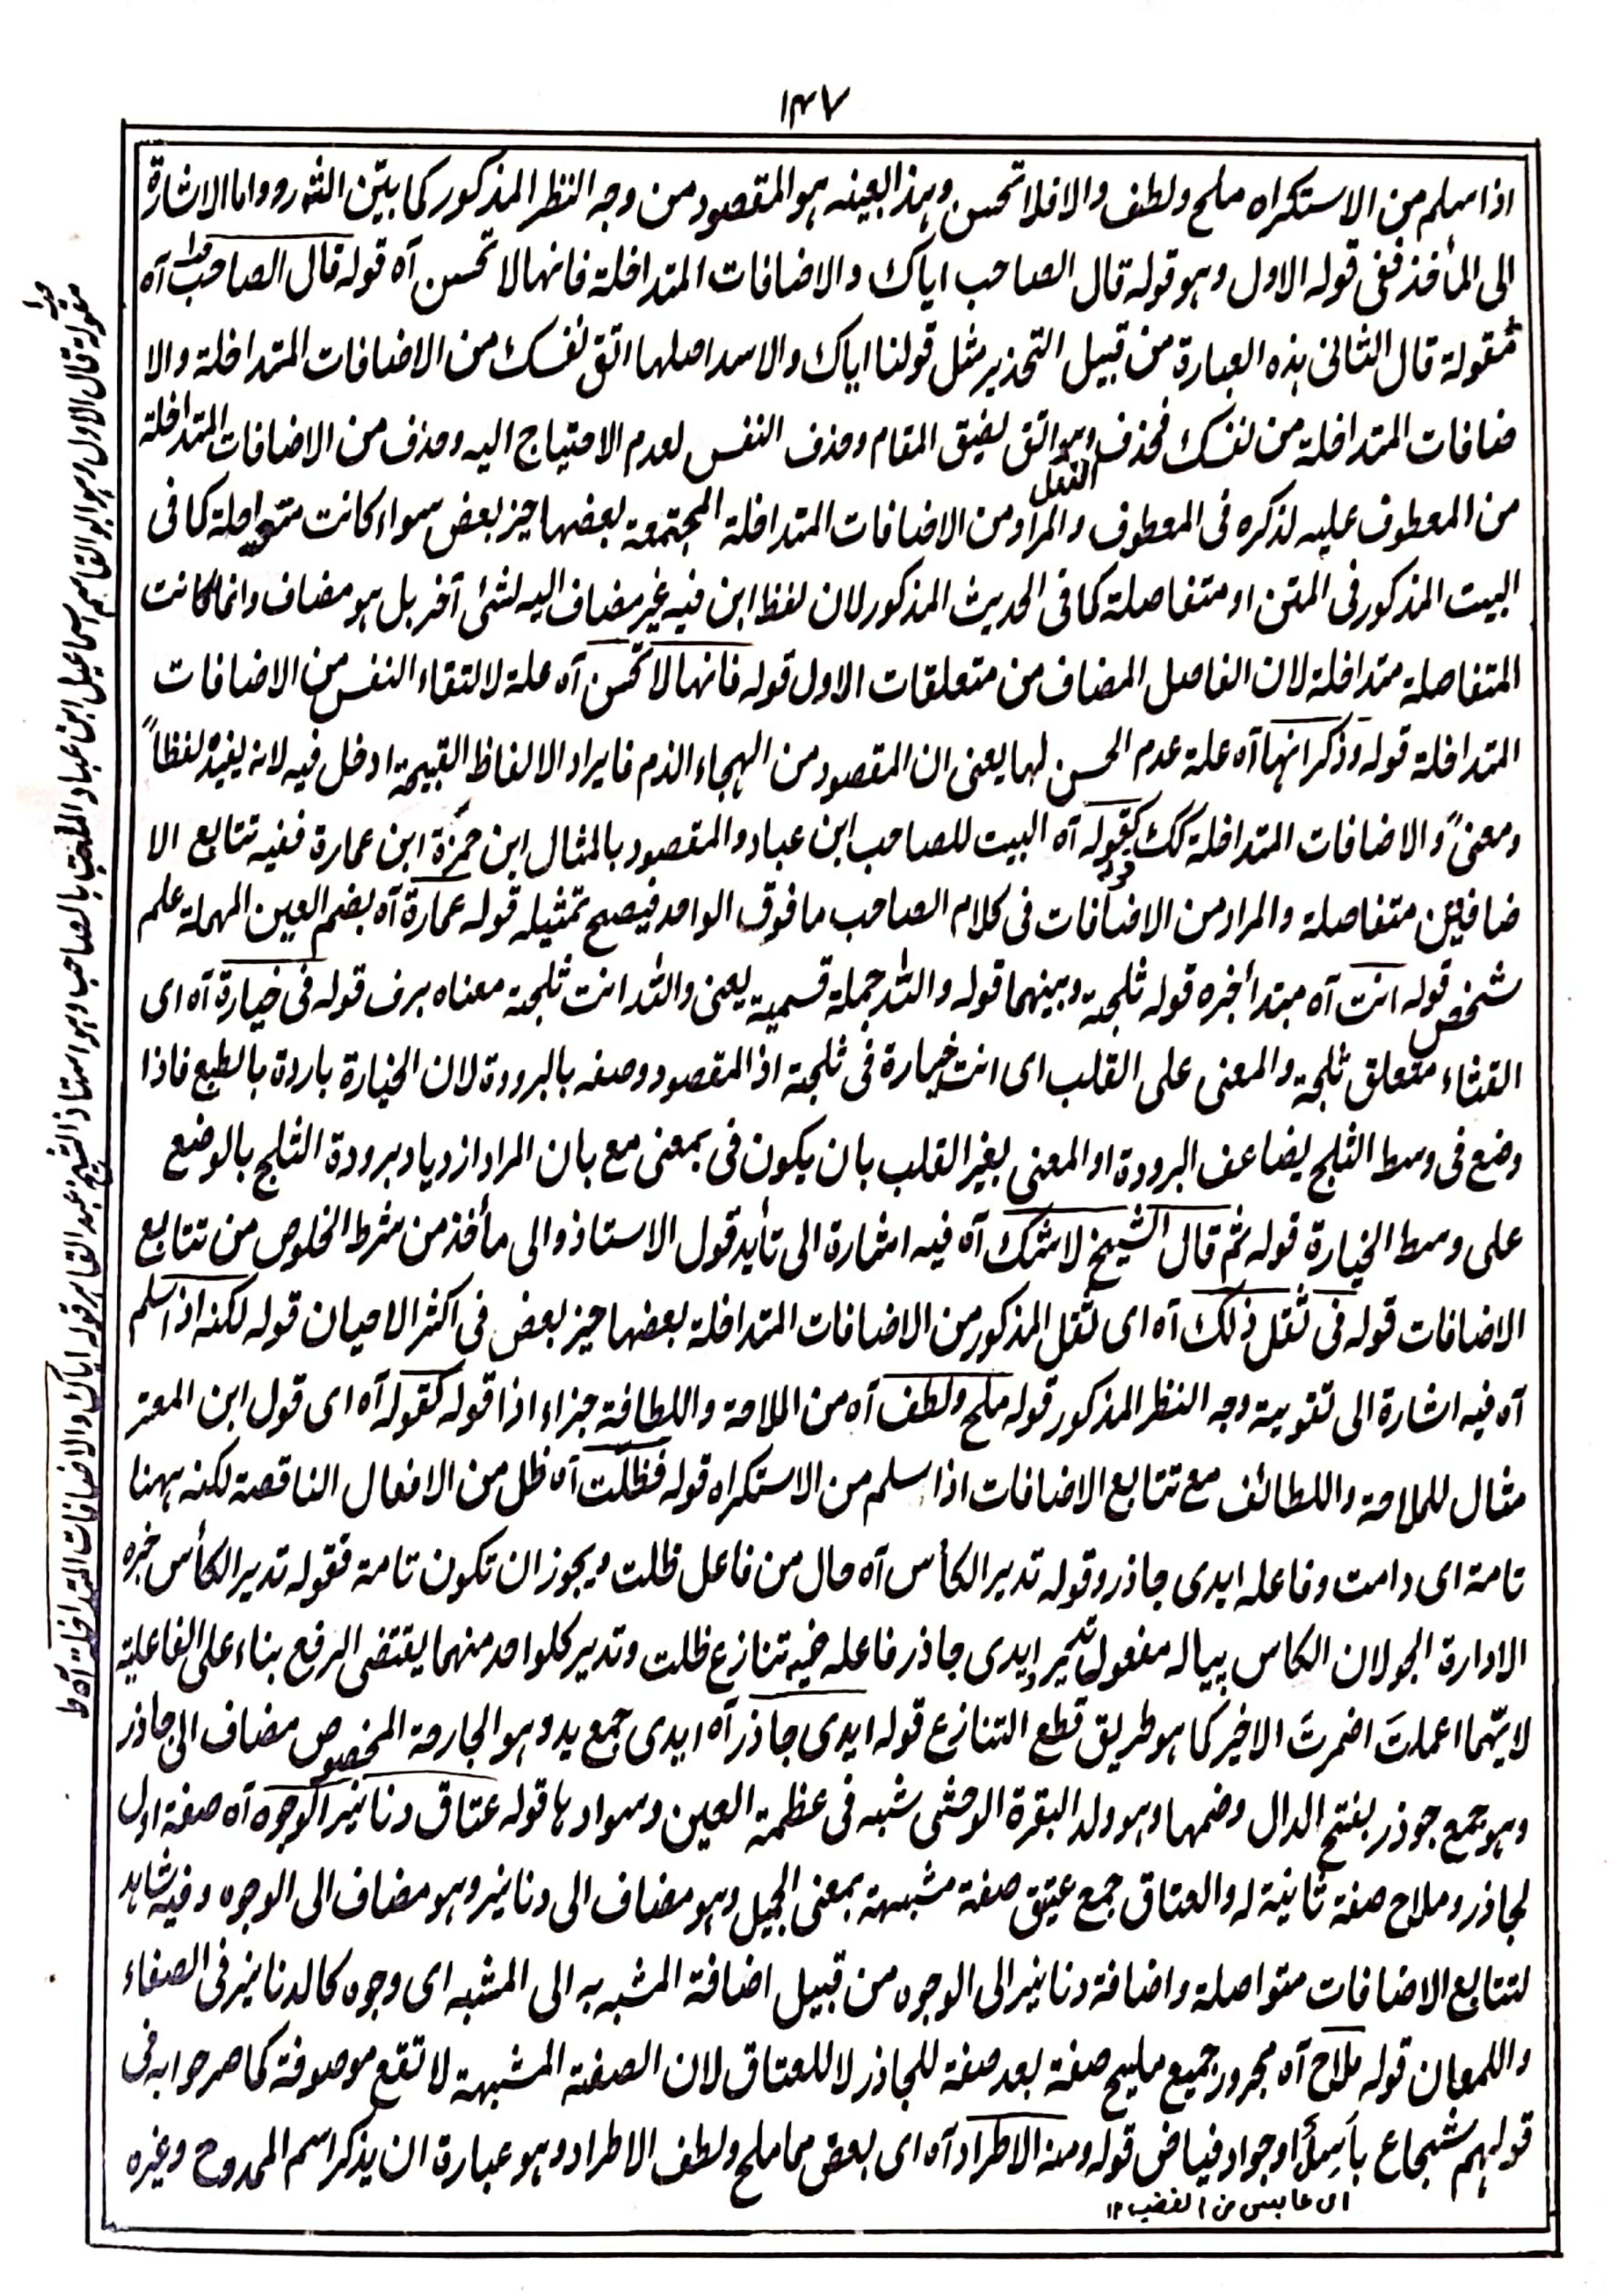 ١٣٧
اذا سلم من الاستكراه ملح ولطف والا فلا تحسن وهذا بعينه هو المقصود من وجه النظر المذكور كما بيّن الشر واما الاشارة
الى المأخذ ففى قوله الاول وهو قوله قال الصاحب اياك والاضافات المتداخلة فانها لا تحسن آه قوله قال الصاحب آه
مقولة قال الثانى هذه العبارة من قبيل التحذير مثل قولنا اياك والاسد اصلها اتق نفسك من الاضافات المتداخلة والا
ضافات المتداخلة من نفسك فحذف الفعل وهو اتق لضيق المقام وحذف النفس لعدم الاحتياج اليه وحذف من الاضافات المتداخلة
من المعطوف عليه لذكره فى المعطوف والمراد من الاضافات المتداخلة المجتمعة بعضها حيز بعض سواء كانت متواصلة كما فى
البيت المذكور فى المتن او متفاصلة كما فى الحديث المذكور لان لفظ ابن فيه غير مضاف اليه لشئ آخر بل هو مضاف وانما كانت
المتفاصلة متداخلة لان الفاصل المضاف من متعلقات الاول قوله فانها لا تحسن آه علة لالتقاء النفس من الاضافات
المتداخلة قوله وذكر انها آه علة عدم الحسن لها يعنى ان المقصود من الهجاء الذم فايراد الالفاظ القبيحة ادخل فيه لانه يفيد لفظاً
ومعنىً والاضافات المتداخلة كك كقوله آه البيت للصاحب ابن عباد والمقصود بالمثال ابن حمزة ابن عمارة ففيه تتابع الا
ضافتين متفاصلة والمراد من الاضافات فى كلام الصاحب ما فوق الواحد فيصح تمثيله قوله عمارة آه بضم العين المهملة علم
شخص قوله انت آه مبتدأ خبره قوله ثلجة وبينهما قوله والله جملة قسمية يعنى والله انت ثلجة معناه برف قوله فى خيارة آه اى
القثاء متعلق ثلجة والمعنى على القلب اى انت خيارة فى ثلجة اذ المقصود وصفه بالبرودة لان الخيارة باردة بالطبع فاذا
وضع فى وسط الثلج يضاعف البرودة او المعنى بغير القلب بان يكون فى بمعنى مع بان المراد ازدياد برودة الثلج بالوضع
على وسط الخيارة قوله ثم قال الشيخ لا شك آه فيه اشارة الى تأيد قول الاستاذ والى مأخذ من شرط الخلوص من تتابع
الاضافات قوله فى ثقل ذلك آه اى ثقل المذكور من الاضافات المتداخلة بعضها حيز بعض فى اكثر الاحيان قوله لكنه اذا سلم
آه فيه اشارة الى تقوية وجه النظر المذكور قوله ملح ولطف آه من الملاحة واللطافة جزاء اذا قوله كقوله آه اى قول ابن المعتز
مثال للملاحة واللطائف مع تتابع الاضافات اذا سلم من الاستكراه قوله فظلت آه ظل من الافعال الناقصة لكنه ههنا
تامة اى دامت وفاعله ايدى جاذر وقوله تدير الكأس آه حال من فاعل ظلت ويجوز ان تكون تامة فقوله تدير الكأس خبره
الادارة الجولان الكاس پیاله مفعول تدير ايدى جاذر فاعله فيه تنازع ظلت وتدير كلواحد منهما يقتضى الرفع بناء على الفاعلية
لايّهما اعملتَ اضمرتَ الاخير كما هو طريق قطع التنازع قوله ايدى جاذر آه ايدى جمع يد وهو الجارحة المخصوص مضاف الى جاذر
وهو جمع جوذر بفتح الدال وضمها وهو ولد البقرة الوحشى شبه فى عظمة العين وسوادها قوله عتاق دنانير الوجوه آه صفة اول
لجاذر وملاح صفة ثانية له والعتاق جمع عتيق صفة مشبهة بمعنى الجميل وهو مضاف الى دنانير وهو مضاف الى الوجوه وفيه شاهد
لتتابع الاضافات متواصلة واضافة دنانير الى الوجوه من قبيل اضافة المشبه به الى المشبه اى وجوه كالدنانير فى الصفاء
واللمعان قوله ملاح آه مجرور جميع مليح صفة بعد صفة للجاذر لا للعتاق لان الصفة المشبهة لا تقع موصوفة كما صرحوا به فى
قولهم شجاع باسل او جواد فياض قوله ومنه الاطراد آه اى بعض مما ملح ولطف الاطراد وهو عبارة ان يذكر اسم الممدوح وغيره
اى عابس من الغضب ١٢
مقولة قال الاول وهو ابو القاسم اسماعيل ابن عباد والملقب بالصاحب وهو استاذ الشيخ عبد القاهر قوله اياك والاضافات المتداخلة آه